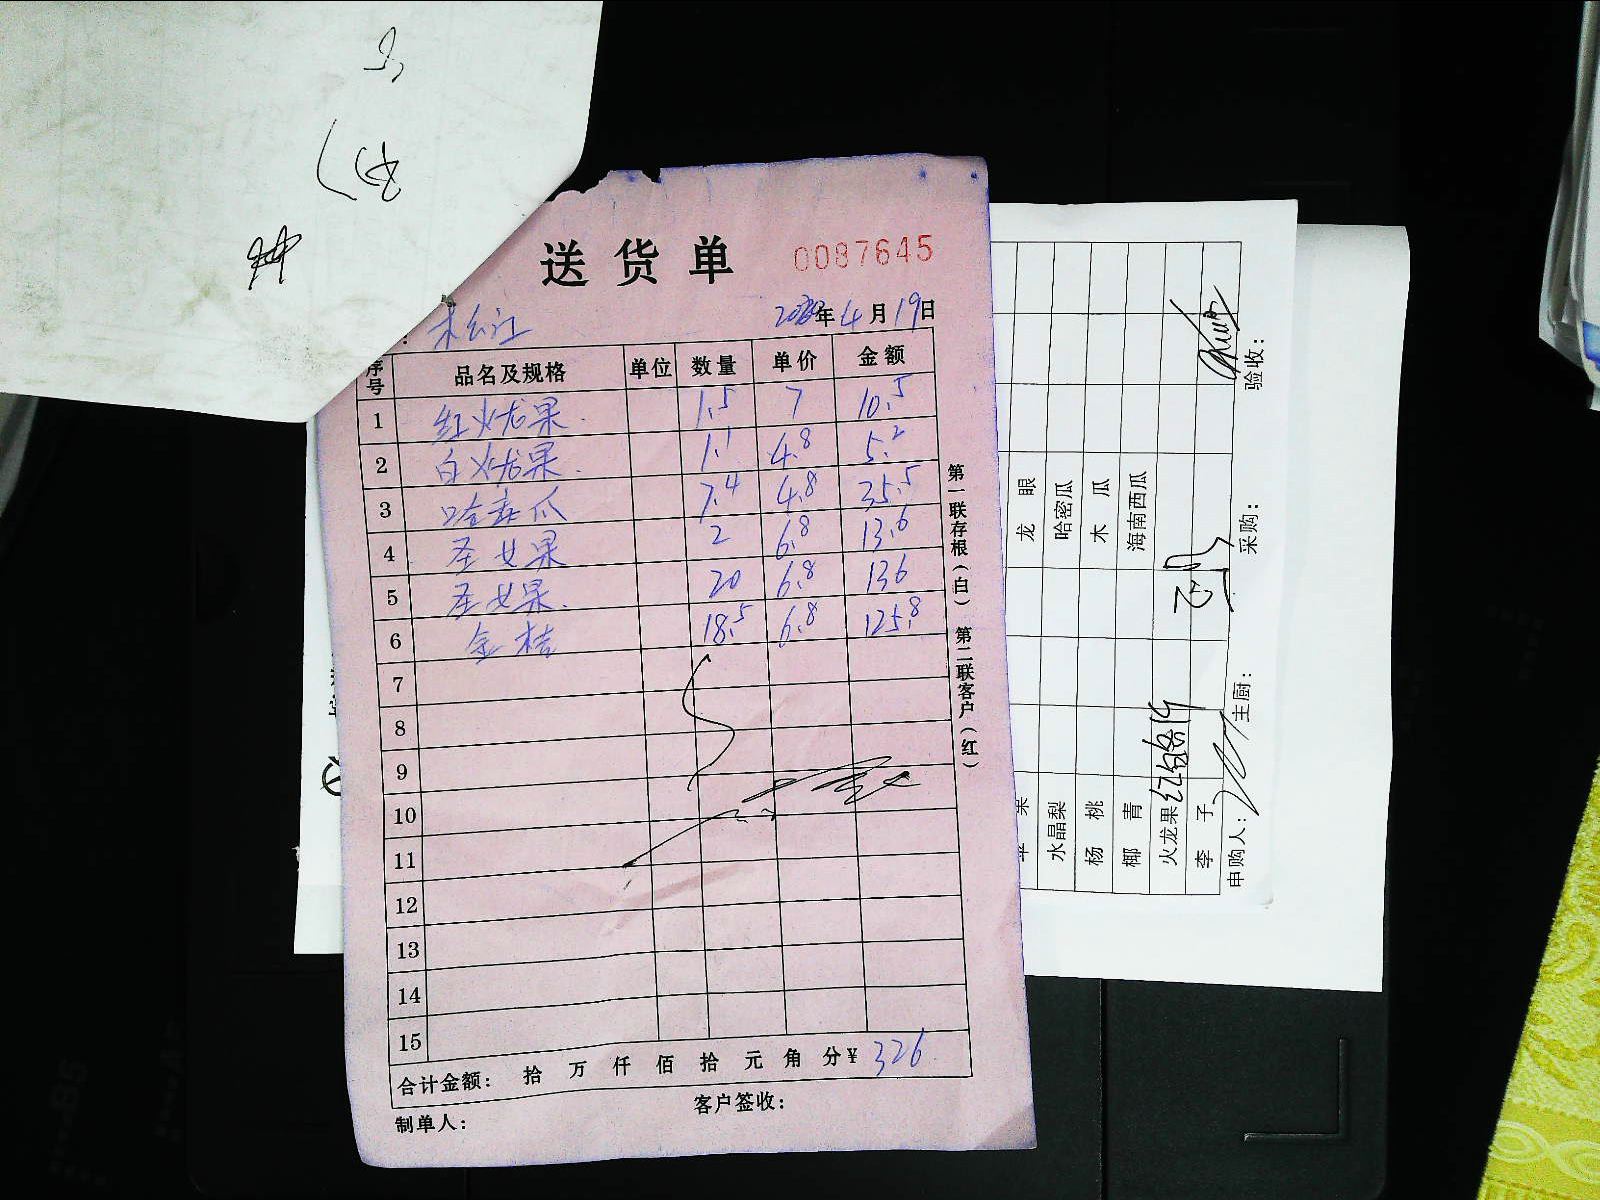 送货单 0087645
年4月19日
序号 品名及规格 单位 数量 单价 金额
1 红火龙果 1.5 7 10.5
2 白火龙果 1.1 4.8 5.2
3 哈密瓜 7.4 4.8 35.5
4 圣女果 2 6.8 13.6
5 圣女果 20 6.8 136
6 金桔 18.5 6.8 125.8
7
8
9
10
11
12
13
14
15
合计金额: 拾 万 仟 佰 拾 元 角 分 ¥ 326
制单人: 客户签收:
第一联存根(白) 第二联客户(红)
龙眼
水晶梨 哈密瓜
杨桃 木瓜
椰青 海南西瓜
火龙果
李子
申购人: 主厨: 采购: 验收: